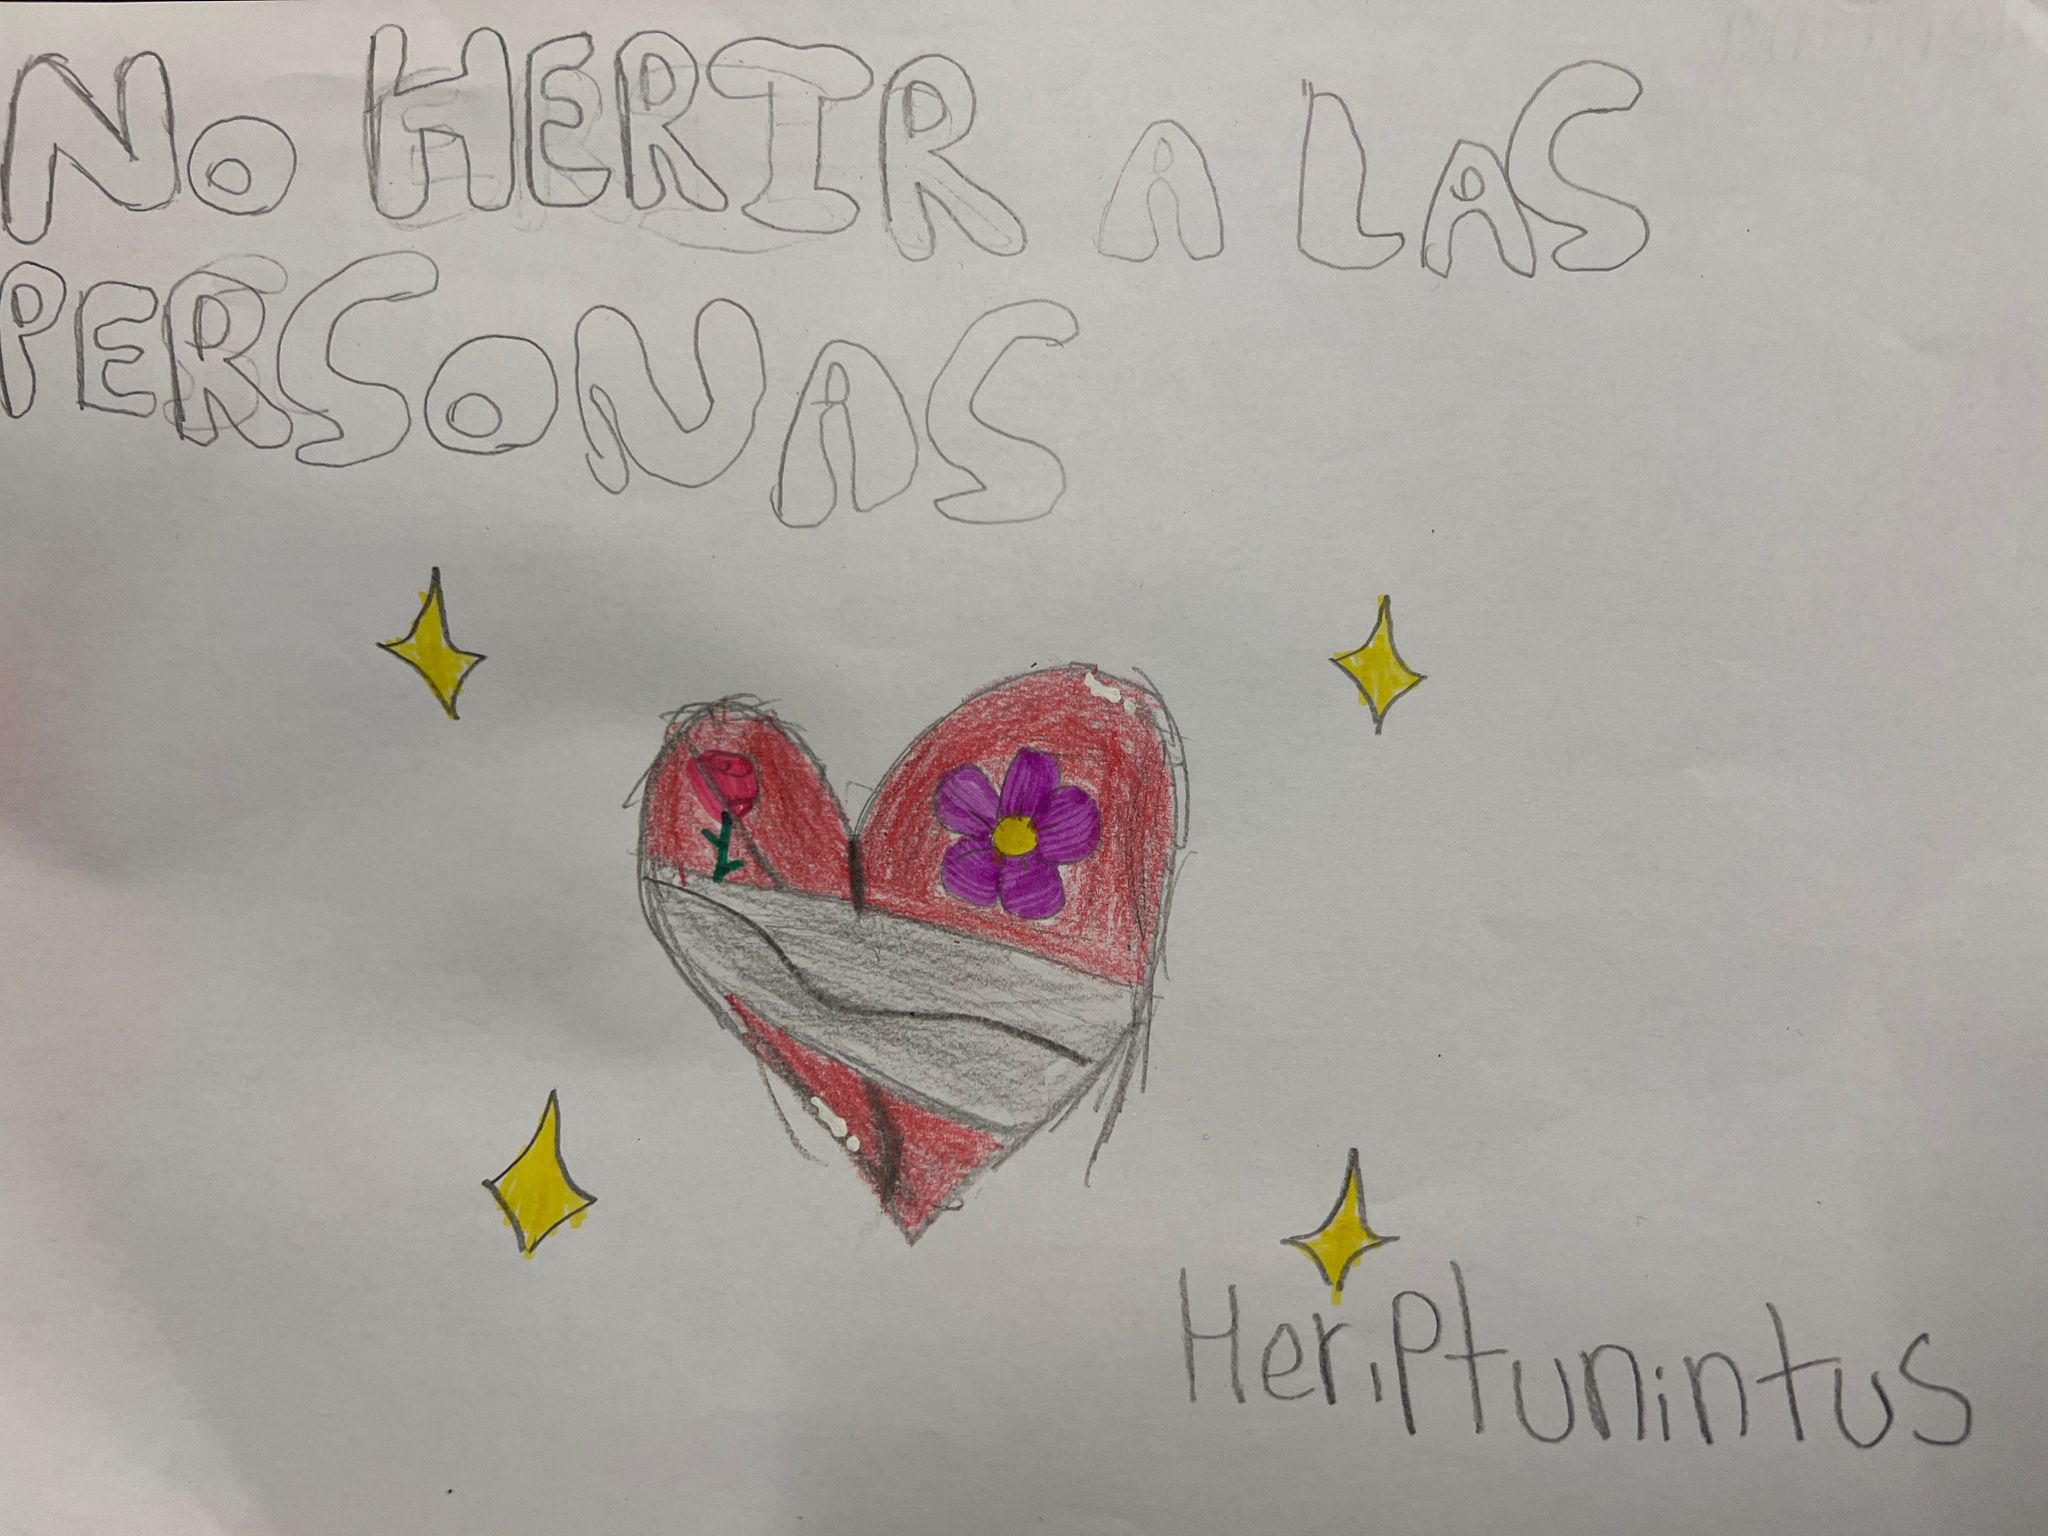 No HERIR A LAS
PERSONAS
Heriptunintus